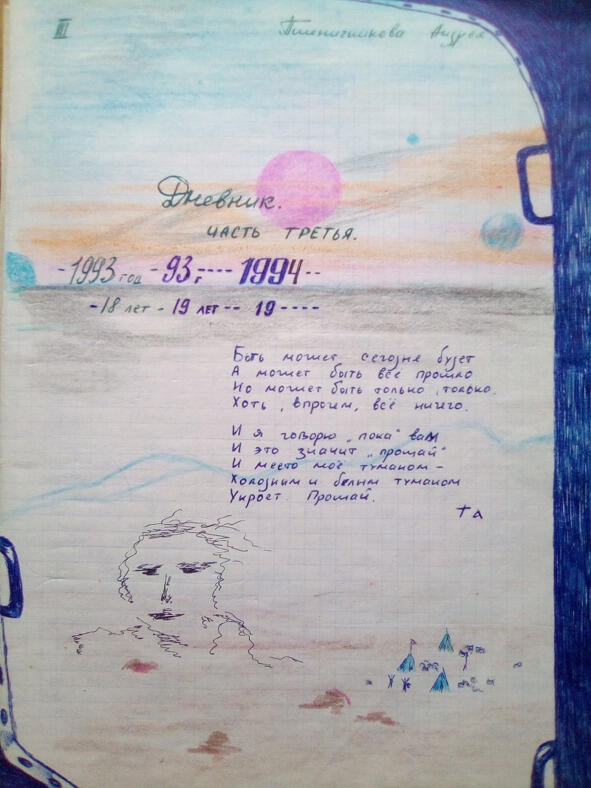 III
Пшеничникова Андрея
Дневник.
часть третья.
-1993 год -93г.---- 1994--
-18 лет - 19 лет -- 19 ----
Быть может сегодня будет
А может быть всё прошло
Но может быть только, только.
Хоть, впрочем, всё ничего.
И я говорю „пока" вам
И это значит „прощай"
И место моё туманом –
Холодным и белым туманом
Укроет. Прощай.